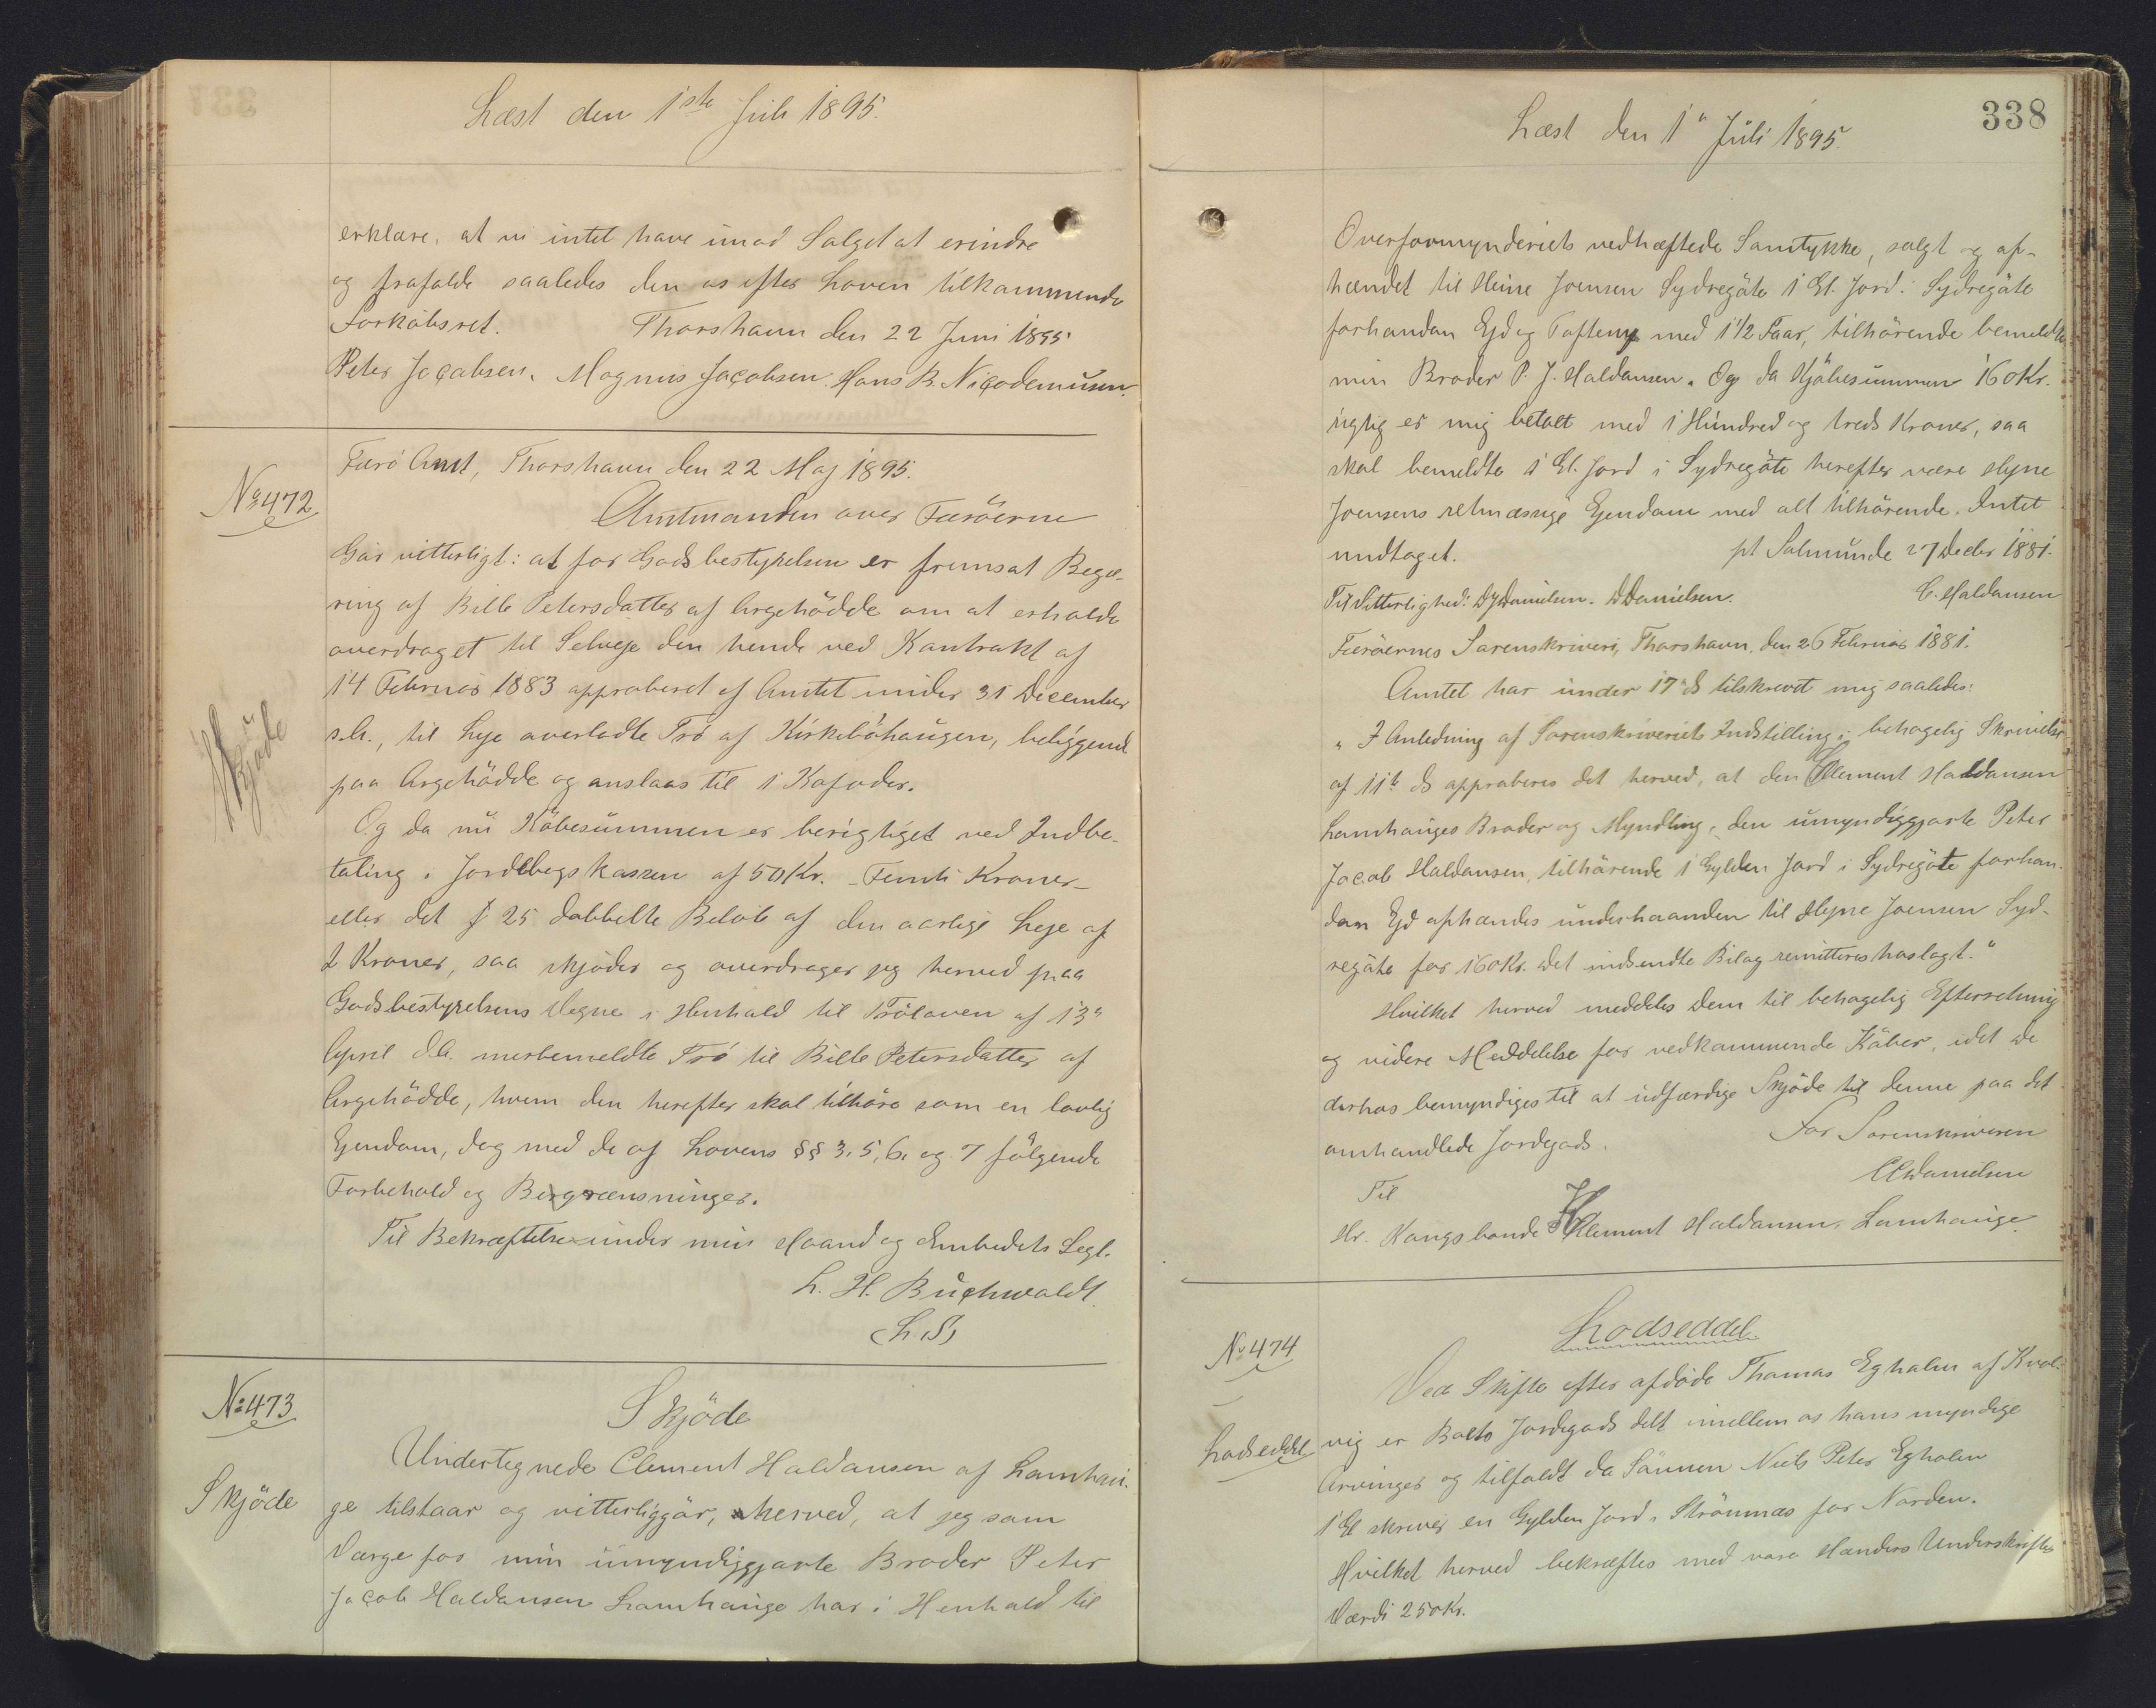 Læst den 1ste Juli 1895.
erklære, at vi intet have imod Salget at erindre
og frafalde saaledes den os efter Loven tilkommende
Forkøbsret. Thorshavn den 22 Juni 1895
Peter Jacobsen. Magnus Jacobsen. Hans B. Nicodemusen.
No 472
Skjöde
Færö Amt, Thorshavn den 22 Maj 1895.
Amtmanden over Færöerne
Gör vitterligt: at for Godsbestyrelsen er fremsat Begæ-
ring af Bille Petersdatter af Argehödde om at erholde
overdraget til Selveje den hende ved Kontrakt af
14 Februar 1883 approberet af Amtet under 31 December
s.A., til Leje overladte Trö af Kirkeböhaugen, beliggende
paa Argehödde og anslaas til 1 Kofoder.
Og da nu Köbesummen er berigtiget ved Indbe-
taling i Jordebogskassen af 50 Kr. - Femti Kroner -
eller det f 25 dobbelte Belöb af den aarlige Leje af
2 Kroner, saa skjöder og overdrager jeg herved paa
Godsbestyrelsens Vegne i Henhold til Tröloven af 13"
April d.A. merbemeldte Trö til Bille Petersdatter af
Argehödde, hvem den herefter skal tilhöre som en lovlig
Ejendom, dog med de af Lovens §§ 3, 5, 6, og 7 fölgende
Forbehold og Begrænsninger.
Til Bekræftelse under min Haand og Embedets Segl.
L. H. Buchwaldt.
(L.S.)
No 473
Skjöde
Skjöde
Undertegnede Clement Haldansen af Lamhau-
ge tilstaar og vitterliggör, herved, at jeg som
Værge for min umyndiggjorte Broder Peter
Jacob Haldansen Lamhauge har i Henhold til
338
Læst den 1" Juli 1895.
Overformynderiets vedhæftede Samtykke, solgt og af-
hændet til Heine Joensen Sydregöte 1 Gl. Jord i Sydregöte
forhandan Ejd og Toftem med 1 1/2 Faar, tilhörende bemeldte
min Broder P. J. Haldansen. Og da Kjöbesummen 160 Kr.
rigtig er mig betalt med 1 Hundred og treds Kroner, saa
skal bemeldte 1 Gl. Jord i Sydregöte herefter være Hejne
Joensens retmæssige Ejendom med alt tilhörende. Intet
undtaget. pt Salmunde 27 Decbr 1881.
Til Vitterlighed: DJDanielsen. DDanielsen. C. Haldansen
Færöernes Sorenskriveri, Thorshavn, den 26 Februar 1881.
Amtet har under 17" ds tilskrevet mig saaledes:
"I Anledning af Sorenskriveriets Indstilling i behagelig Skrivelse
af 11te ds approberes det herved, at den Clement Haldansen
Lamhauges Broder og Myndling, den umyndiggjorte Peter
Jacob Haldansen, tilhörende 1 Gylden Jord i Sydregöte forhan-
dan Ejd afhændes underhaanden til Hejne Joensen Syd-
regöte for 160 Kr. Det indsendte Bilag remitteres hoslagt."
Hvilket herved meddeles Dem til behagelig Efterretning
og videre Meddelelse for vedkommende Köber, idet De
derhos bemyndiges til at udfærdige Skjöde til denne paa det
omhandlede Jordegods. For Sorenskriveren
Til CEDanielsen
Hr. Kongsbonde Klement Haldansen, Lamhauge.
No 474
Lodseddel
Lodseddel
Ved Skifte efter afdöde Thomas Egholm af Kval-
vig er Boets Jordegods delt imellem os hans myndige
Arvinger og tilfaldt da Sönnen Niels Peter Egholm
1 Gl skriver en Gylden Jord i Strömnæs for Norden.
Hvilket herved bekræftes med vore Hænders Underskrifter
Værdi 250 Kr.